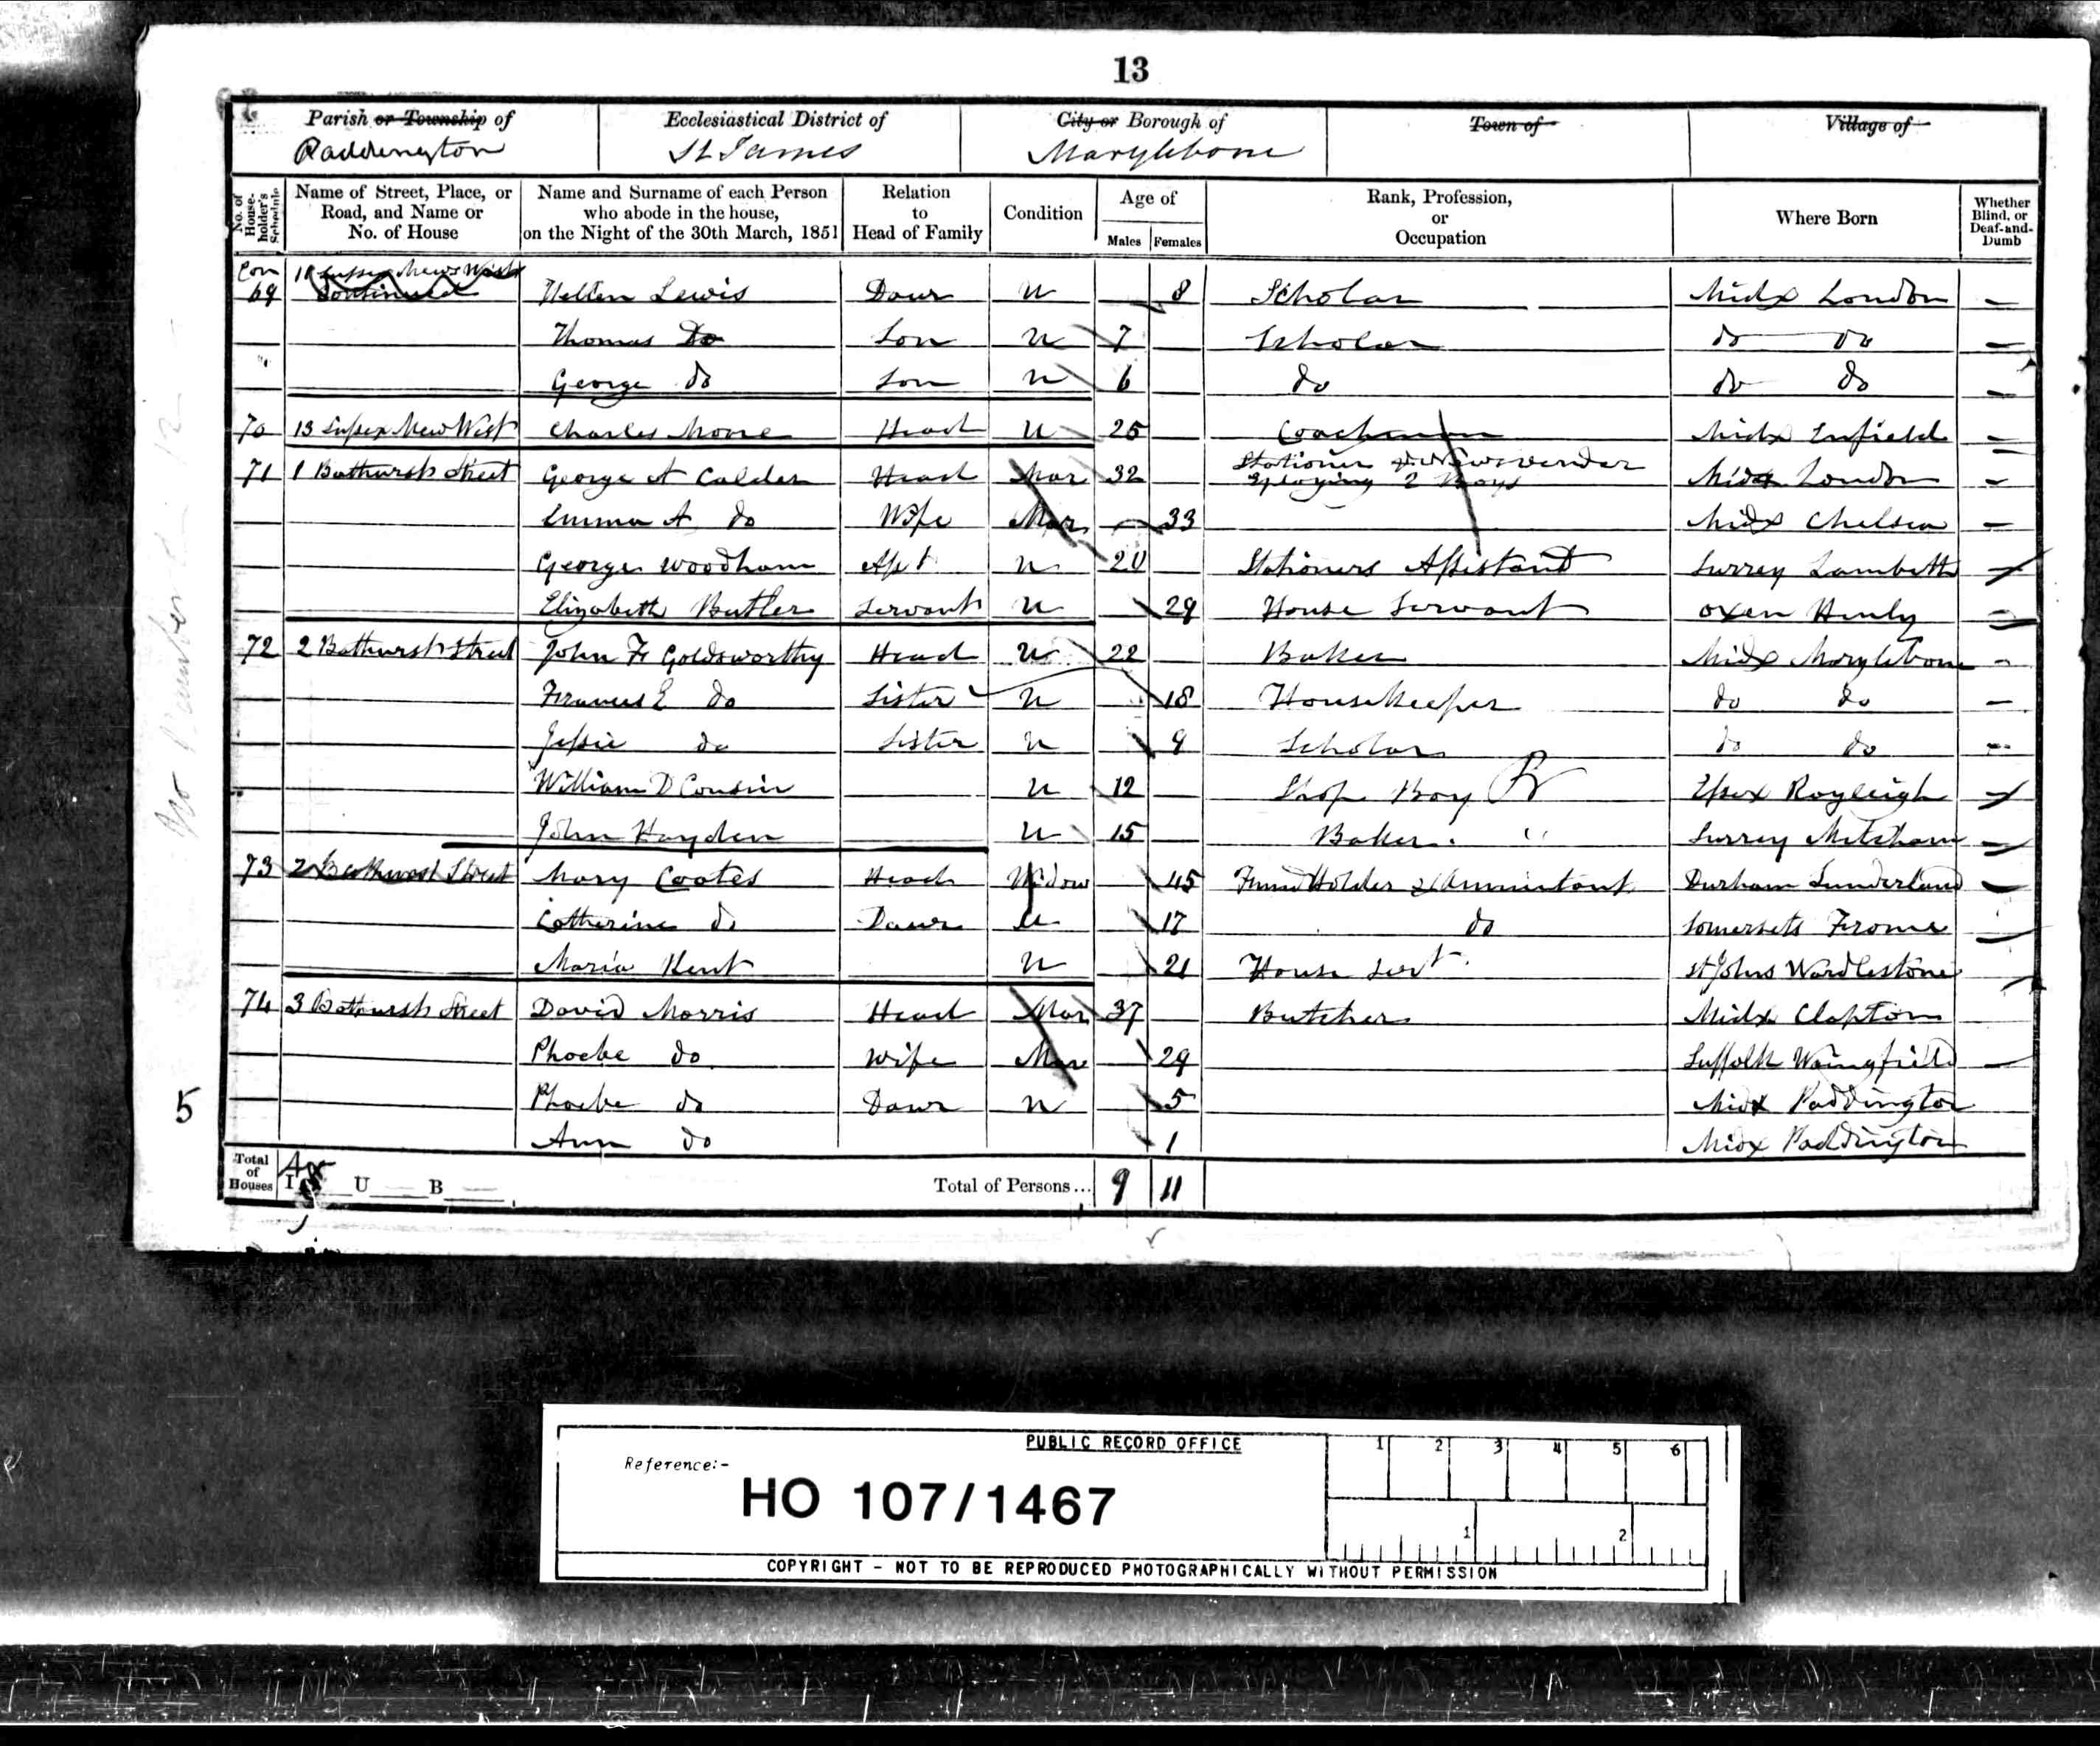 13
Parish or Township of
Paddington
Ecclesiastical District of
St James
City or Borough of
Marylebone
Town of
Village of
No. of House-holder's Schedule
Name of Street, Place, or Road, and Name or No. of House
Name and Surname of each Person who abode in the house, on the Night of the 30th March, 1851
Relation to Head of Family
Condition
Age of
Males Females
Rank, Profession, or Occupation
Where Born
Whether Blind, or Deaf-and-Dumb
Con 69 11 Sussex Mews West Continued Hellen Lewis Daur U 8 Scholar Midx London
Thomas Do Son U 7 Scholar do do
George do Son U 6 do do do
70 13 Sussex Mew West Charles Moore Head U 25 Coachman Midx Enfield
71 1 Bathurst Street George A Calder Head Mar 32 Stationer & Newsvender Eploying 2 Boys Midx London
Emma A do Wife Mar 33 Midx Chelsea
George Woodham Asst U 20 Stationers Assistant Surrey Lambeth
Elizabeth Butler Servant U 29 House Servant Oxen Henly
72 2 Bathurst Street John F Goldsworthy Head U 22 Baker Midx Marylebone
Frances E do Sister U 18 Housekeeper do do
Jessie do Sister U 9 Scholar do do
William D Cousin U 12 Shop Boy Essex Rayleigh
John Hayden U 15 Baker " Surrey Mitcham
73 2 Bathurst Street Mary Coates Head Widow 45 Fund Holder & Annuitant Durham Sunderland
Catherine do Daur U 17 do Somersets Frome
Maria Kent U 21 House Servt St Johns
74 3 Bathurst Street David Morris Head Mar 37 Butcher Midx Clapton
Phoebe do Wife Mar 29 Suffolk Waingfield
Phoebe do Daur U 5 Midx Paddington
Ann do 1 Midx Paddington
5
Total of Houses I 4 U B
Total of Persons... 9 11
PUBLIC RECORD OFFICE
1 2 3 4 5 6
Reference:-
HO 107/1467
1 2
COPYRIGHT - NOT TO BE REPRODUCED PHOTOGRAPHICALLY WITHOUT PERMISSION